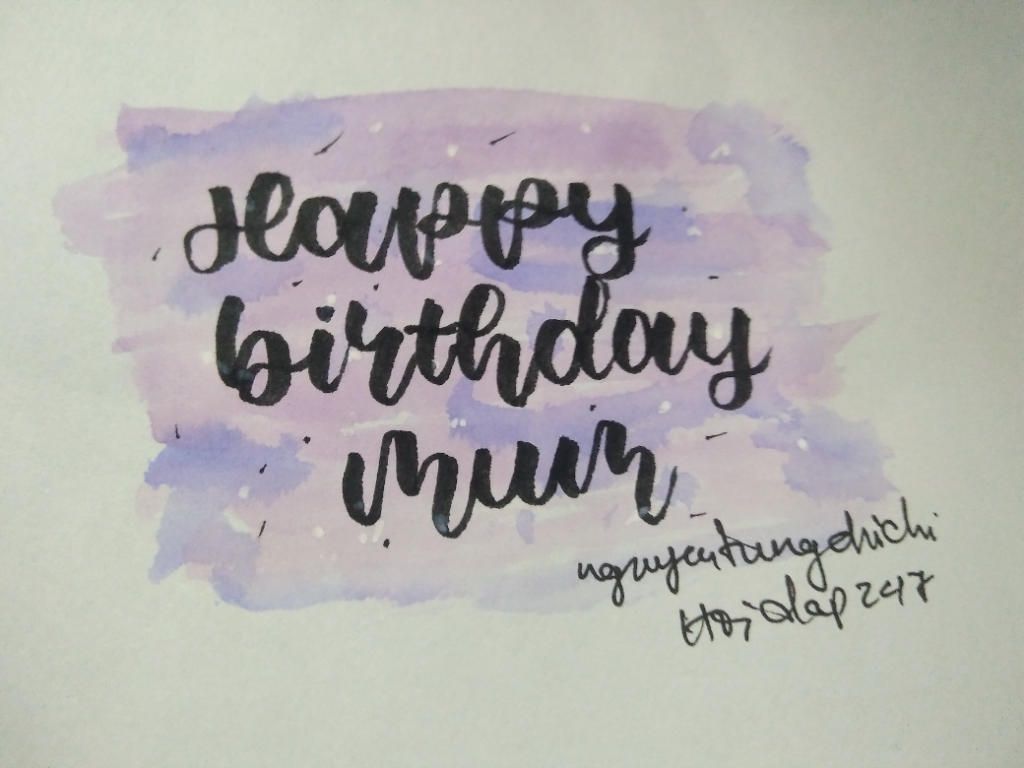 Happy
birthday
mum
nguyentungchichi
Hoidap247